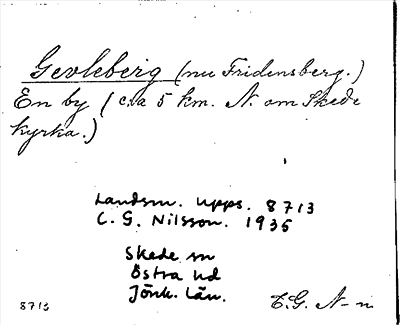 Gevleberg (nu Fridensberg.)
En by (c:a 5 km. N. om Skede
kyrka.)
Landsm. Upps. 8713
C. G. Nilsson. 1935
Skede sn
Östra hd
Jönk. län.
8713
C.G. N-n